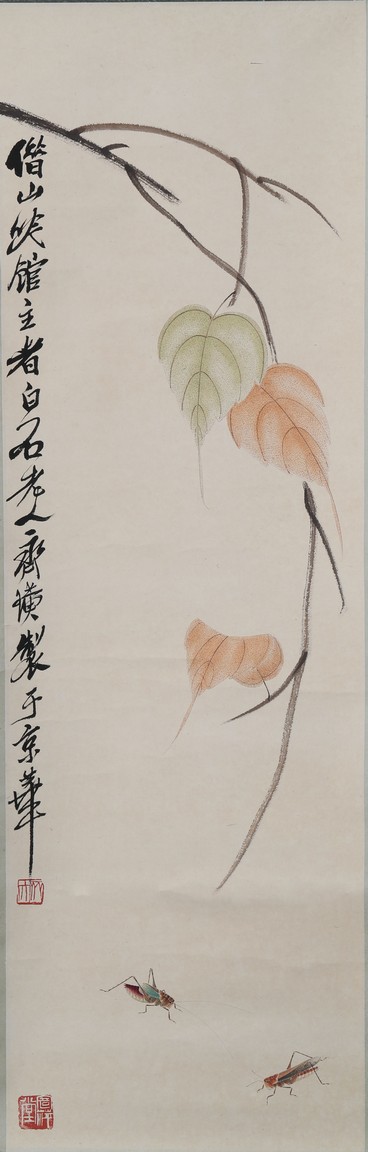 借山吟館主者白石老人齊璜製于京華